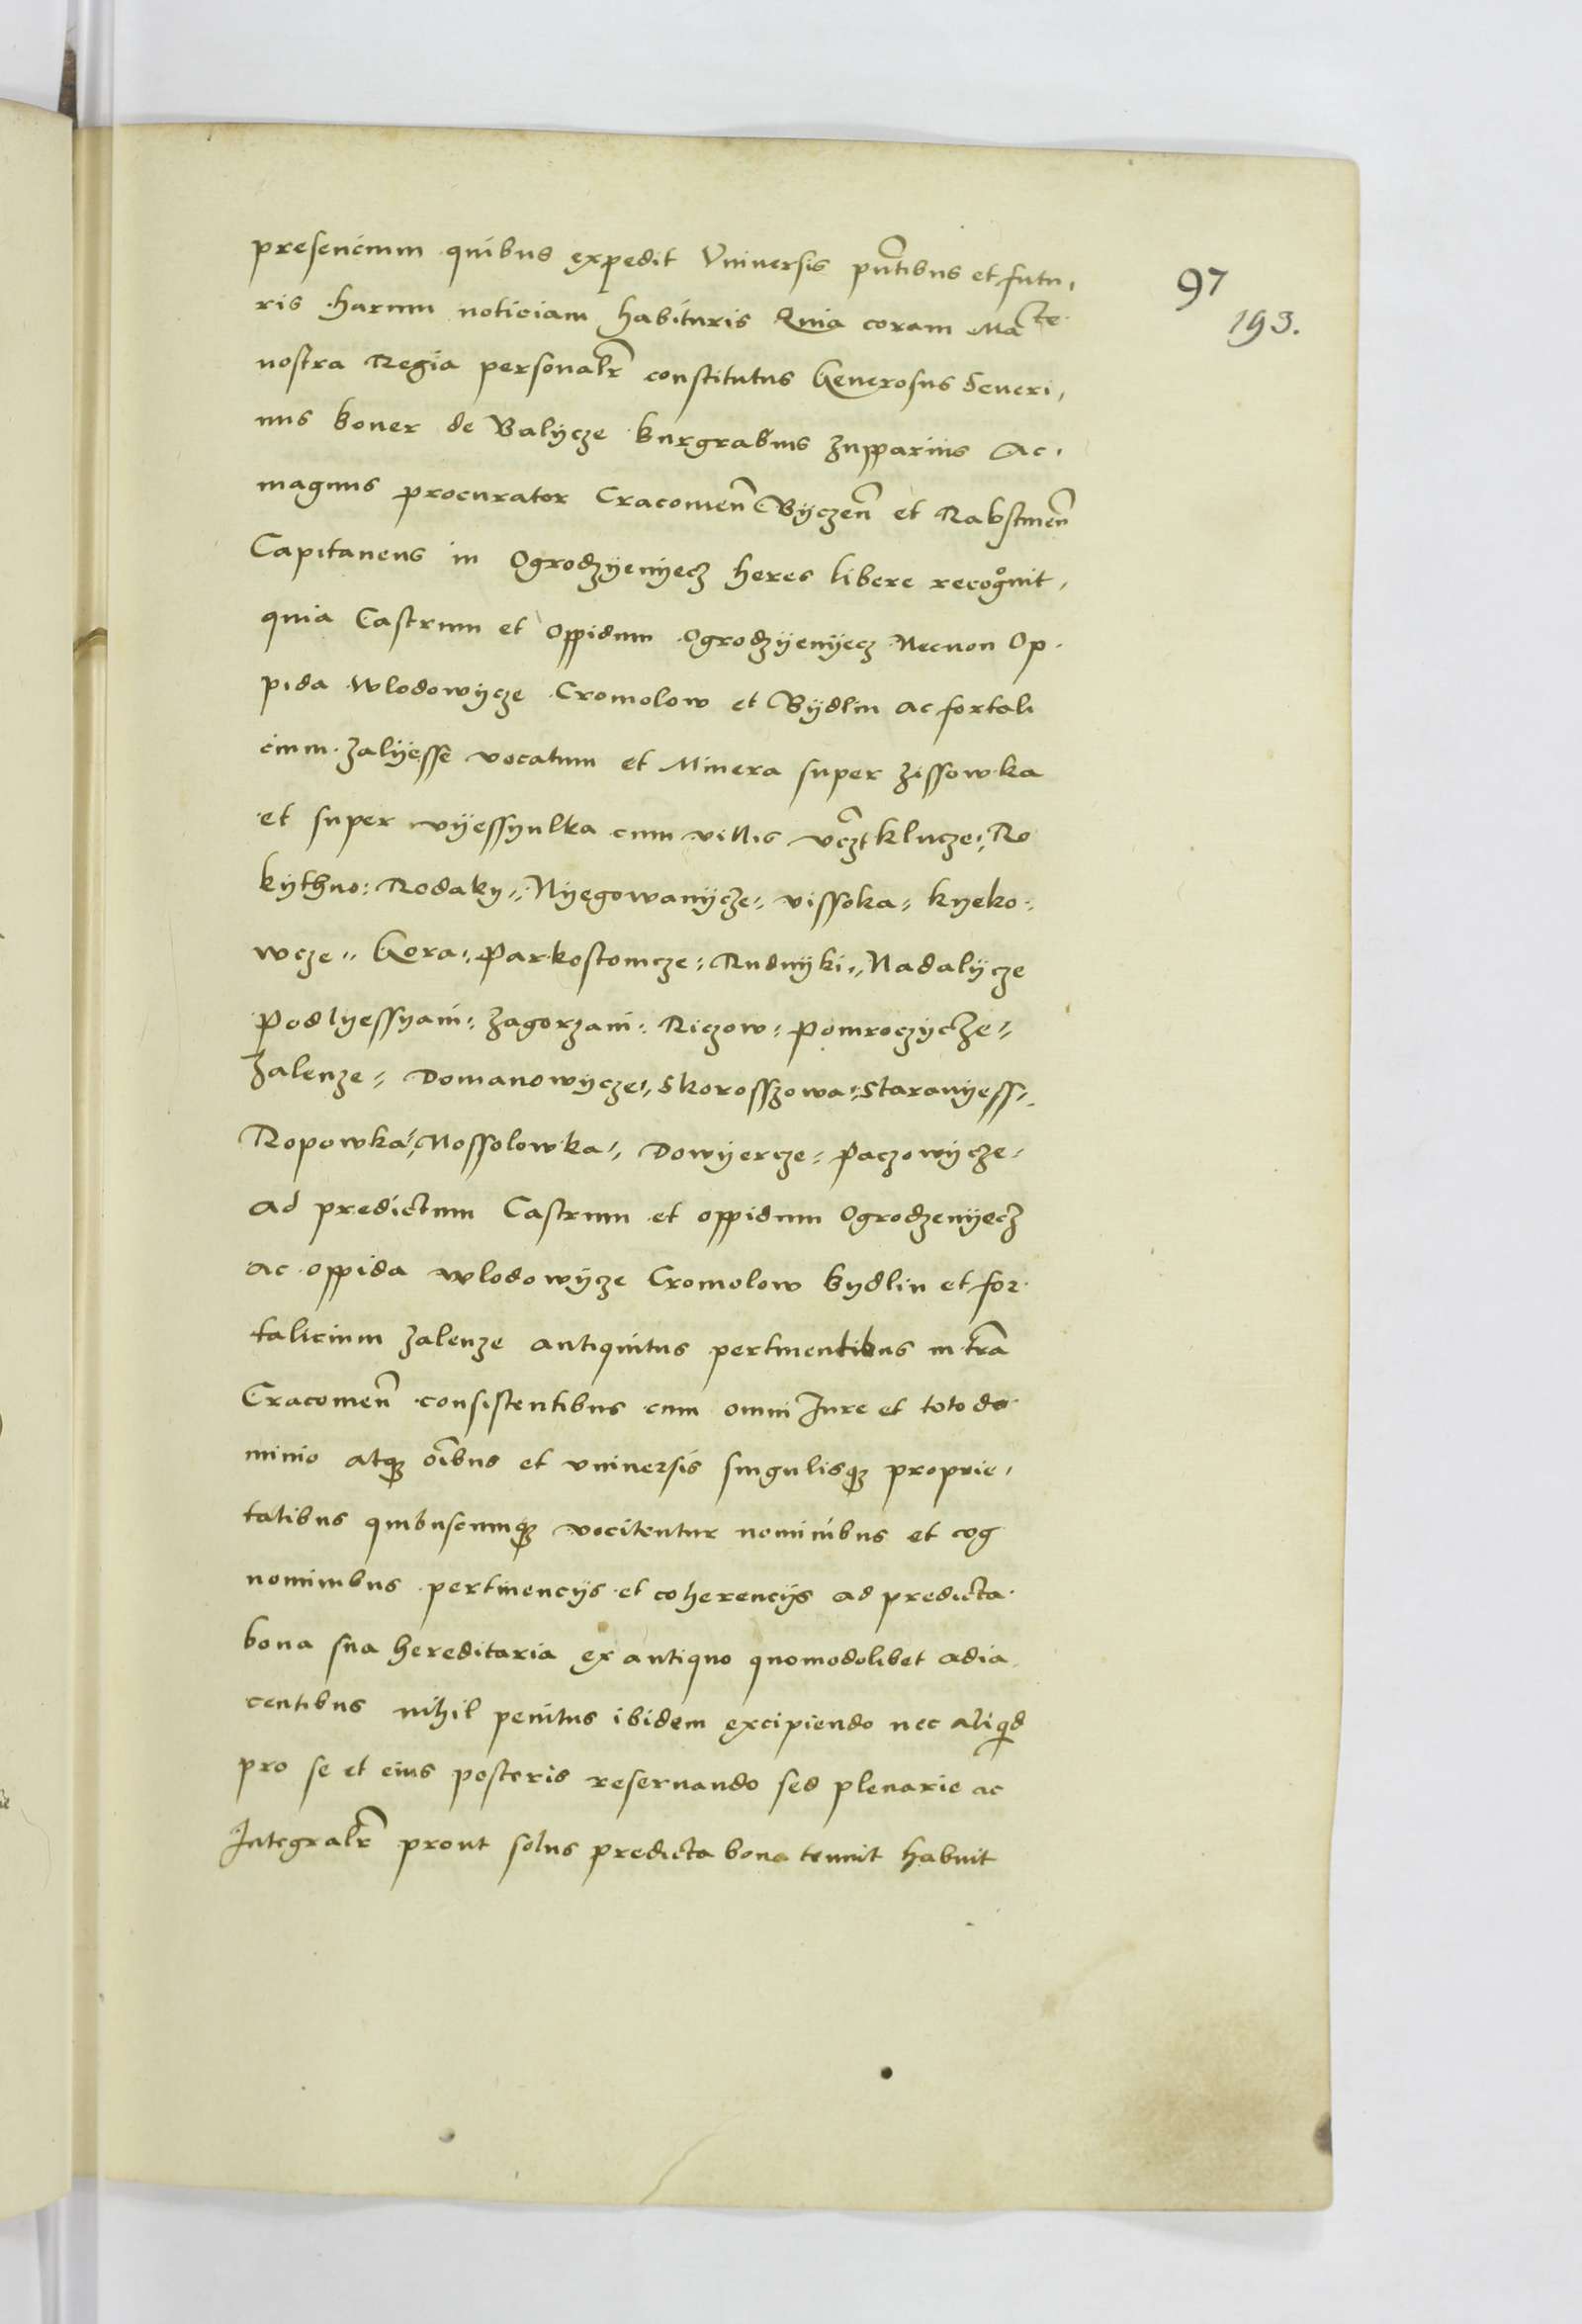 presencium quibus expedit Vniversis pñtibus et futu,
ris harum noticiam habituris Quia coram Mate
nostra Regia personalr constitutus Generosus Seueri,
nus boner de Balycze burgrabius Zupparius Ac
magnus procurator Cracouień Byeczeń et Rabstineń
Capitaneus in Ogrodzyenyecz heres libere recognuit,
quia Castrum et oppidum Ogrodzyenyecz Necnon Op
pida Wlodowycze Cromolow et Bydlin ac fortali
cium Zalyesse vocatum et Minera super Zissowka
et super vyessyulka cum villis vczt klucze, Ro
kythno: Rodaky, Nyegowanycze, vissoka, kyeko
wcze, Gora, Parkostowcze, Rudnyki, Nadalycze
Podlyessyani, Zagorzani, Riczow, Pomroczycze,
Zalenze, Domanowycze, Skorosszowa, Starawyess,
Ropowka, Nossolowka, Dowyercze, Paczowycze,
Ad predictum Castrum et oppidum Ogrodzenyecz
ac oppida wlodowycze Cromolow bydlin et for
talicium Zalenze antiquitus pertinentibus in tra
Cracouień consistentibus cum omni Iure et toto do
minio atqz oibus et vniuersis singulisqz proprie,
tatibus quibuscumqz vocitentur nominibus et cog
nominibus pertinencijs et coherencijs ad predicta
bona sua hereditaria ex antiquo quomodolibet adia
centibus nihil penitus ibidem excipiendo nec aliqd
pro se et eius posteris reseruando sed plenarie ac
Integralr prout solus predicta bona tenuit habuit
97
193.